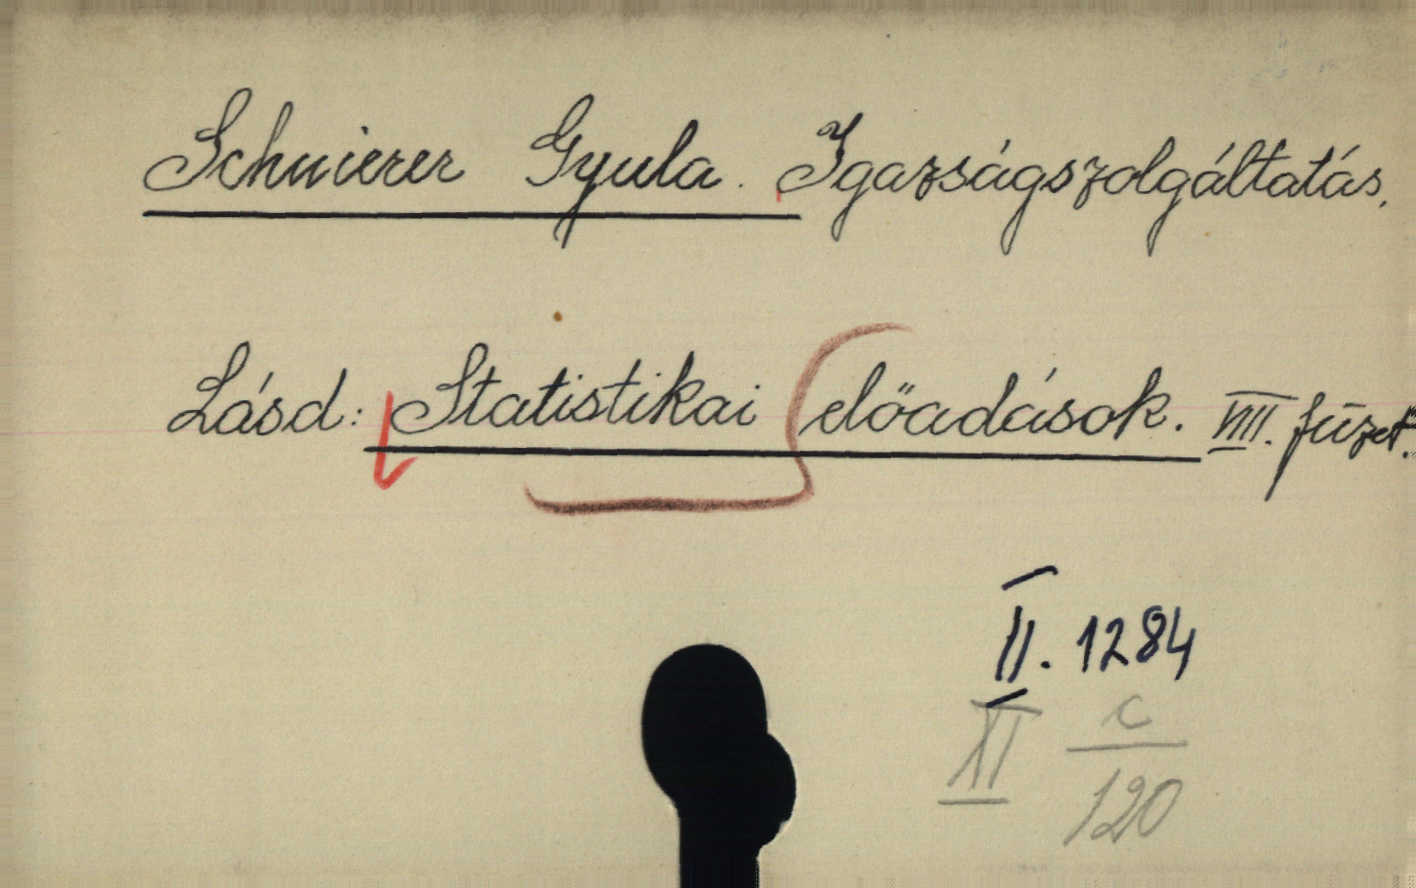 Schnierer Gyula. Igazságszolgáltatás.
Lásd: Statistikai előadások. VIII. füzet.
II. 1284
XI c/120